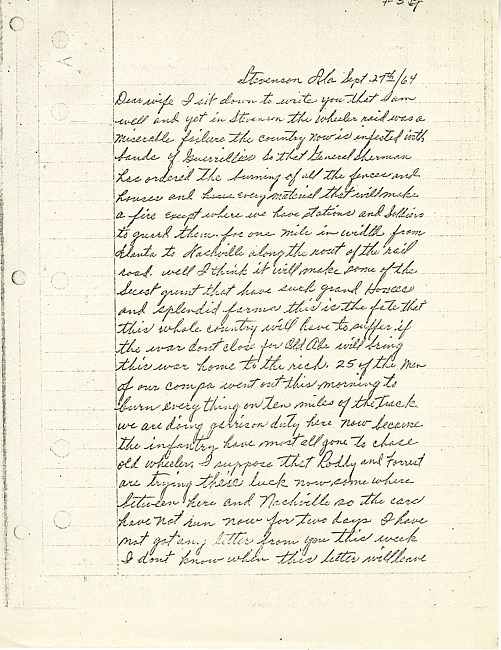 Stevenson Ala Sept. 27th/64
Dear wife I sit down to write you that I am
well and yet in Stevenson the wheeler raid was a
miserable failure the country now is infested with
bands of Guerrillies so that General Sherman
has ordered the burning of all the fences and
houses and every material that will make
a fire except where we have stations and soldiers
to guard them. for one mile in width from
Atlanta to Nashville along the rout of the rail
road. well I think it will make some of the
Secest grunt that have such grand Houses
and splendid farms this is the fate that
this whole country will have to suffer if
the war dont close for Old Abe will bring
this war home to the rich. 25 of the men
of our compa went out this morning to
burn everything on ten miles of the track
we are doing garrison duty here now because
the infantry have most all gone to chase
old wheeler. I suppose that Roddy and Forrest
are trying these luck now some where
between here and Nashville so the cars
have not run now for two days I have
not got any letter from you this week
I dont know when this letter will leave